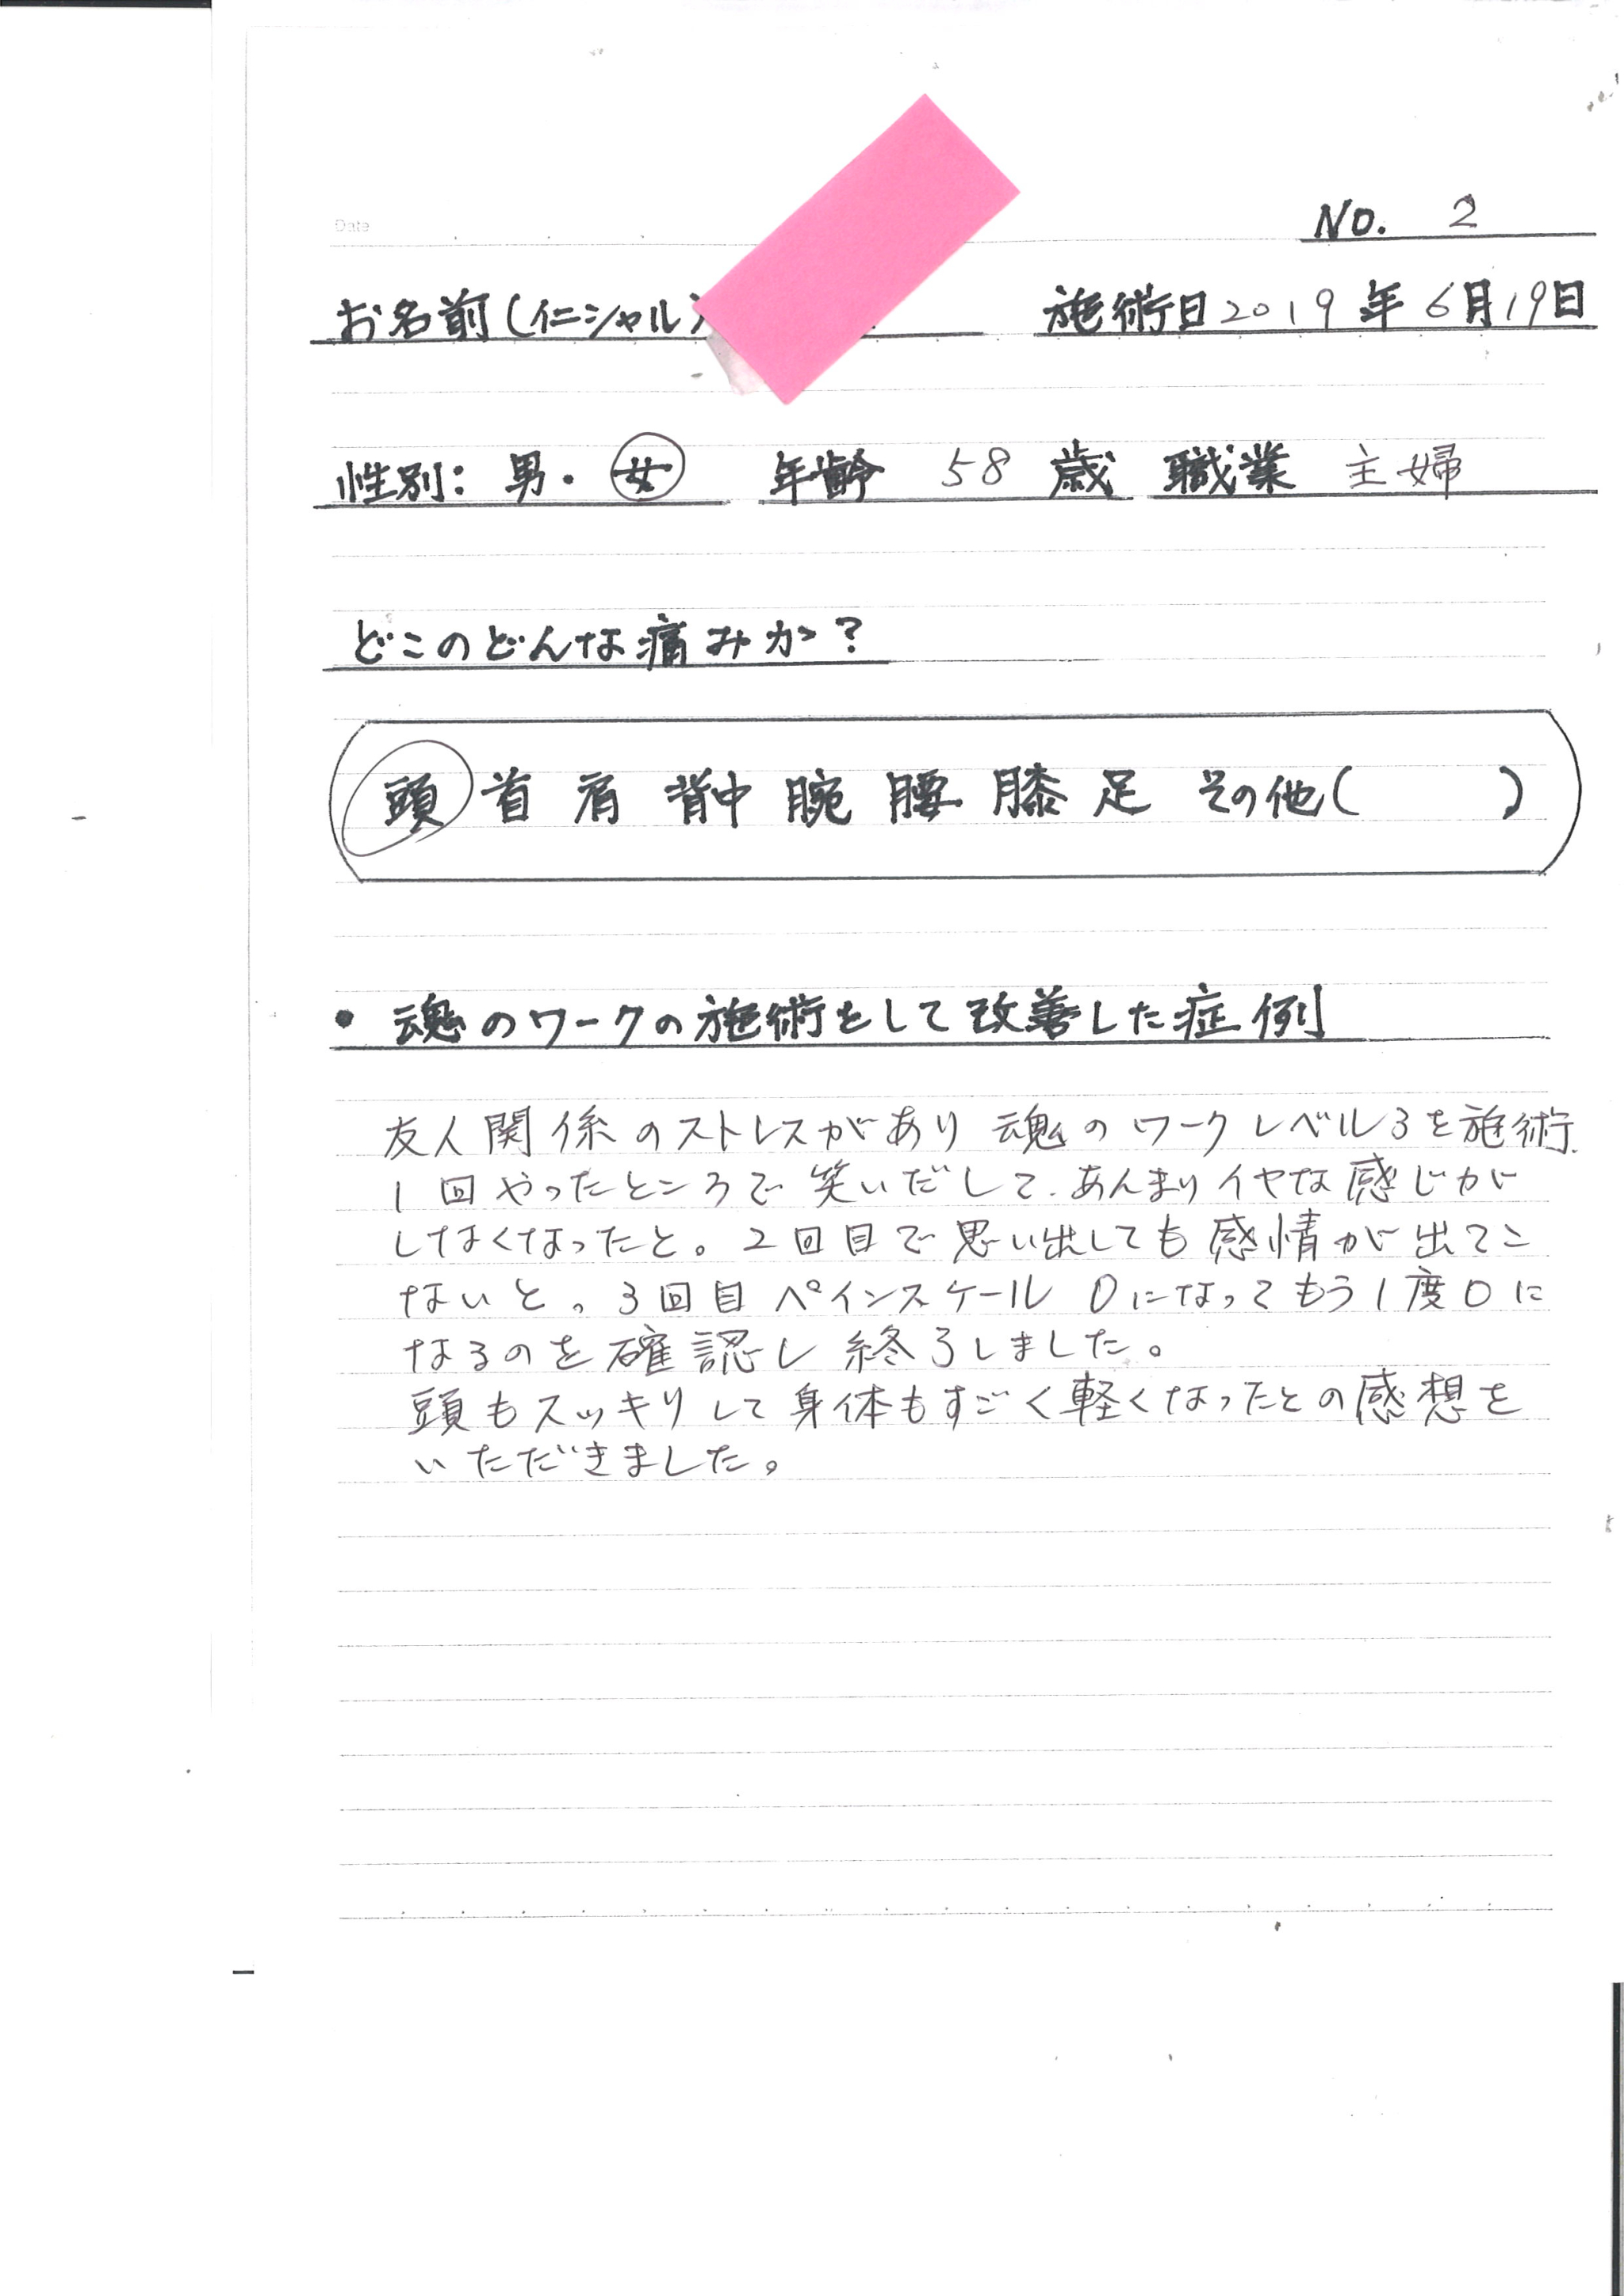 Date
No. 2
お名前(イニシャル) 施術日2019年6月19日
性別: 男・女 年齢 58 歳 職業 主婦
どこのどんな痛みか?
頭 首 肩 背中 腕 腰 膝 足 その他( )
• 魂のワークの施術をして改善した症例
友人関係のストレスがあり 魂のワークレベル3を施術.
1回やったところで笑いだして、あんまりイヤな感じが
しなくなったと。2回目で思い出しても感情が出てこ
ないと。3回目ペインスケール0になってもう1度0に
なるのを確認し終了しました。
頭もスッキリして身体もすごく軽くなったとの感想を
いただきました。